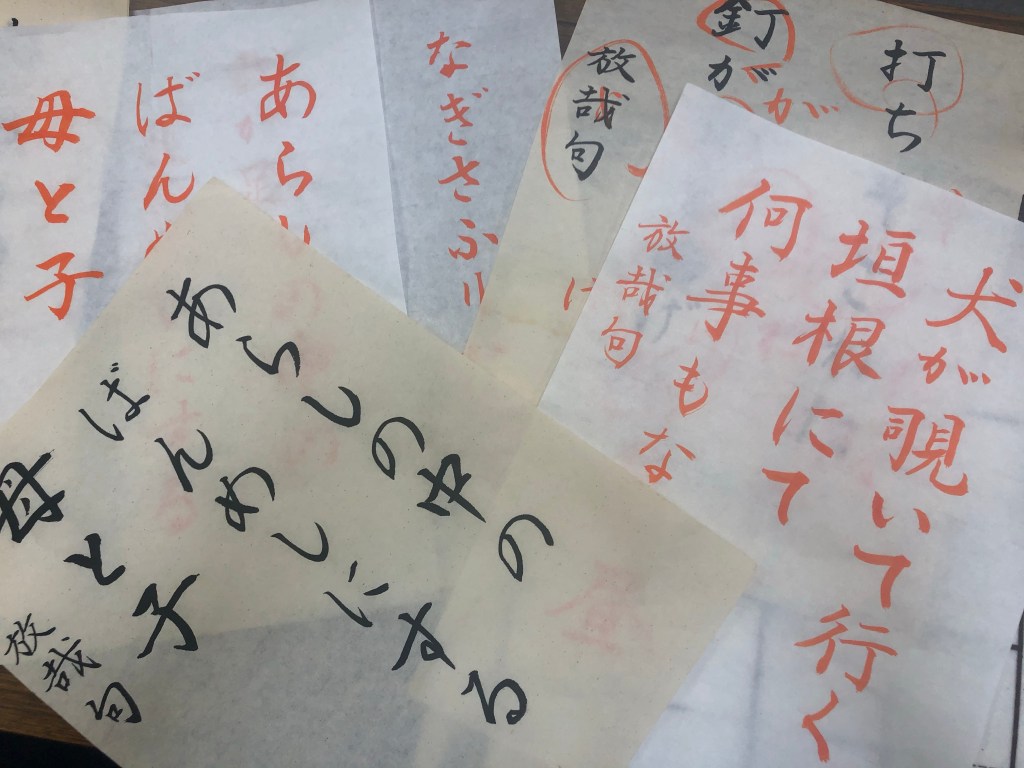 犬が覗いて行く
垣根にて
何事もな
放哉句
打ち
釘がが
放哉句
なぎさふり
あら
ばんめ
母と子
あらしの中の
ばんめしにする
母と子
放哉句